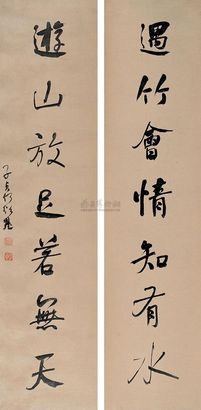 遇竹會情知有水
遊山放足若無天
子貞何紹基